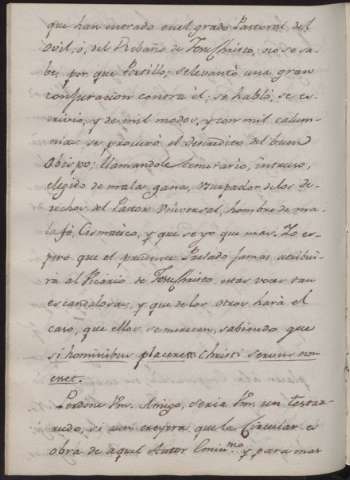 que han entrado en el grado Pastoral del
Ovil, ó, del Rebaño de JesuChristo, no se sa-
be, por que Portillo, se levantó una gran
conjuracion contra el; se habló, se es-
crivió, y de mil modos, y con mil calum-
nias se procuró el descredito del buen
Obispo; llamandole temerario, intruso,
elegido de mala gana, Usurpador de los de-
rechos del Pastor Universal, hombre de ma-
la fé, Cismatico, y que se yo que mas. Yo es-
pero que el prudente Prelado jamas atribui-
rá al Vicario de JesuChristo estas voces tan
escandalosas, y que de los otros hará el
caso, que ellos se merecen, sabiendo que
si hominibus placeret Christi servus non
eret.
Perdone Vm. Amigo, seria Vm. un testa-
rudo, si aun creyera que la Circular es
obra de aquel Autor Emin.mo y para mas